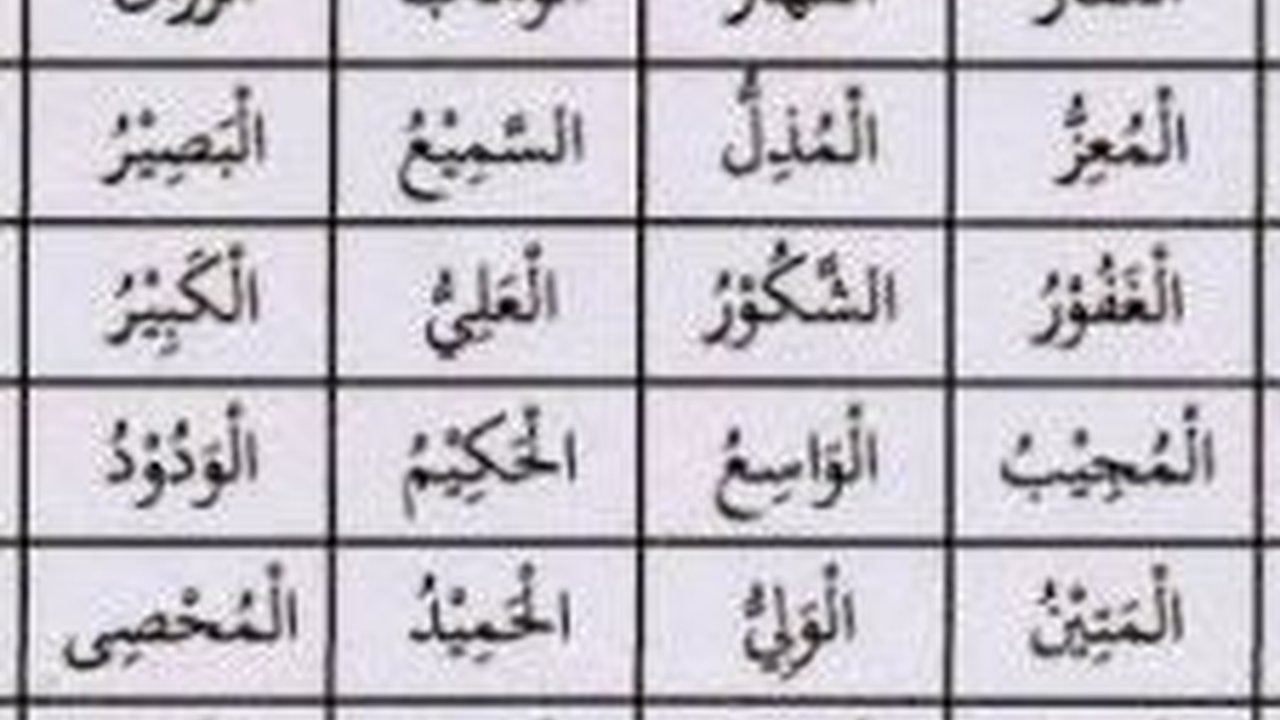 الْمُعِزُّ الْمُذِلُّ السَّمِيْعُ الْبَصِيْرُ
الْغَفُوْرُ الشَّكُوْرُ الْعَلِيُّ الْكَبِيْرُ
الْمُجِيْبُ الْوَاسِعُ الْحَكِيْمُ الْوَدُوْدُ
الْمَتِيْنُ الْوَلِيُّ الْحَمِيْدُ الْمُحْصِى